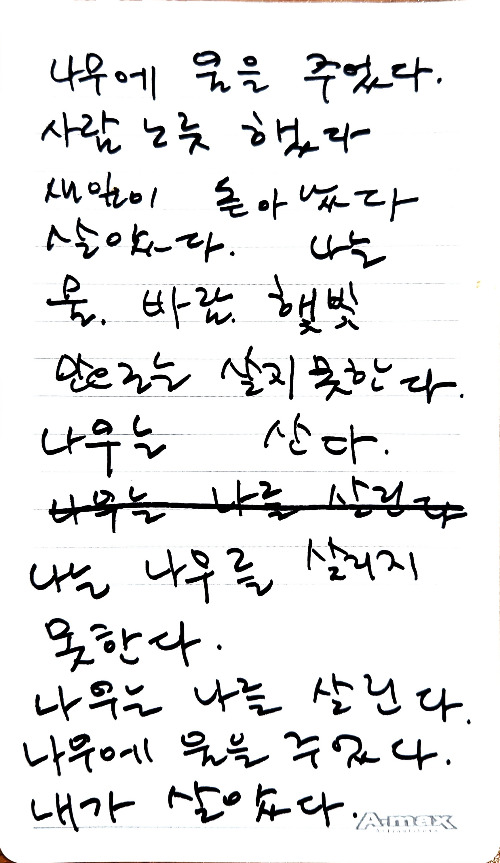 나무에 물을 주었다.
사람 노릇 했다
새잎이 돋아 났다
살았다. 나는
물. 바람. 햇빛
만으로는 살지 못한다.
나무는 산다.
나무는 나를 살린다
나는 나무를 살리지
못한다.
나무는 나를 살린다.
나무에 물을 주었다.
내가 살았다.
A-max